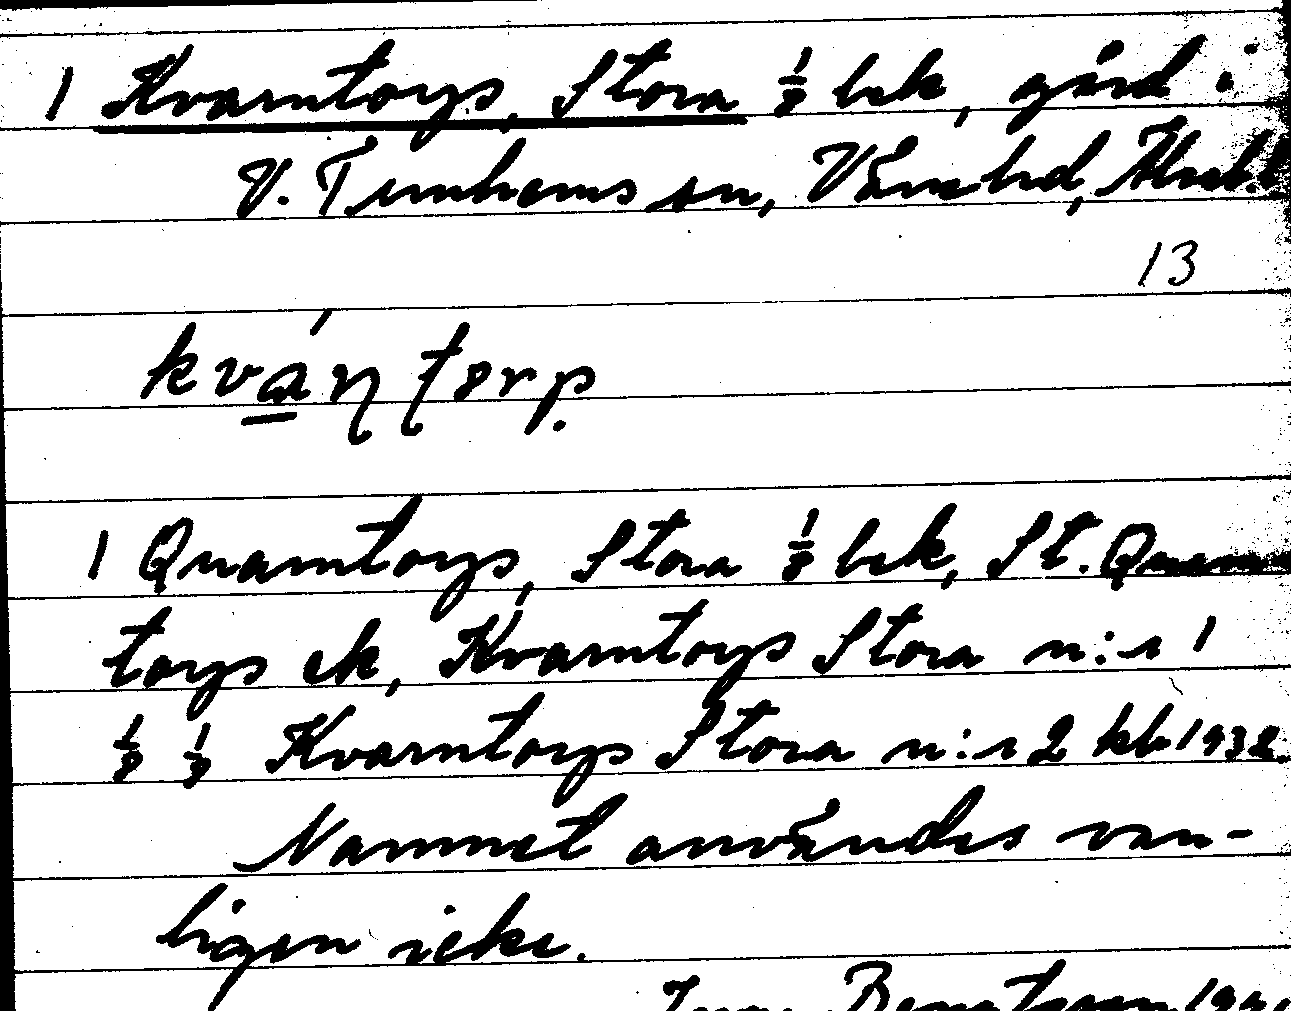 1 Kvarntorp, Stora 1/8 bek, gård i
V. Tunhems sn, Väne hd, Älvsbl
13
kvánṭorp.
1 Quarntorp, Stora 1/8 bek, St. Quarn
torp ek, Kvarntorp Stora n:r 1
1/8 1/8 Kvarntorp Stora n:r 2 kb 1932.
Namnet användes van-
ligen icke.
Bengtsson